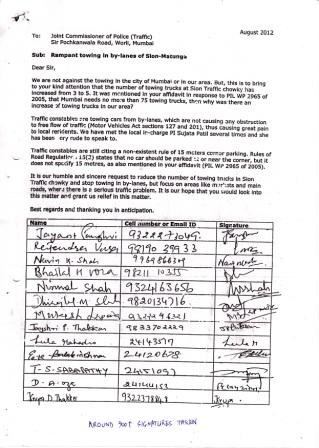 August 2012
To: Joint Commissioner of Police (Traffic)
Sir Pochkanwala Road, Worli, Mumbai
Sub: Rampant towing in by-lanes of Sion-Matunga
Dear Sir,
We are not against the towing in the city of Mumbai or in our area. But, this is to
bring to your kind attention that the number of towing trucks at Sion Traffic chowky has
increased from 3 to 5. It was mentioned in your affidavit in response to PIL WP 2965 of
2005, that Mumbai needs no more than 75 towing trucks, then why was there an
increase of towing trucks in our area?
Traffic constables are towing cars from by-lanes, which are not causing any obstruction
to free flow of traffic (Motor Vehicles Act sections 127 and 201), thus causing great pain
to local residents. We have met the local in-charge PI Sujata Patil several times and she
has been very rude to speak to.
Traffic constables are still citing a non-existent rule of 15 meters corner parking. Rules of
Road Regulation 15(2) states that no car should be parked at or near the corner, but it
does not specify 15 metres, as also mentioned in your affidavit (PIL WP 2965 of 2005).
It is our humble and sincere request to reduce the number of towing trucks in Sion
Traffic chowky and stop towing in by-lanes, but focus on areas like markets and main
roads, where there is a serious traffic problem. It is our hope that you would look into
this matter and grant us relief in this matter.
Best regards and thanking you in anticipation.
Name Cell number or Email ID Signature
Jayant
Navin K. Shah 9969866309
Bhailal H Vora 98211 10355
Nirmal Shah 9324163656
9820134716
Jayshri P. Thakkar 9833702229
24143517
24120678
T. S. SABAPATHY 24151091
D. A. oza 24144153
D Thakker 9322378848
AROUND 300+ SIGNATURES TAKEN